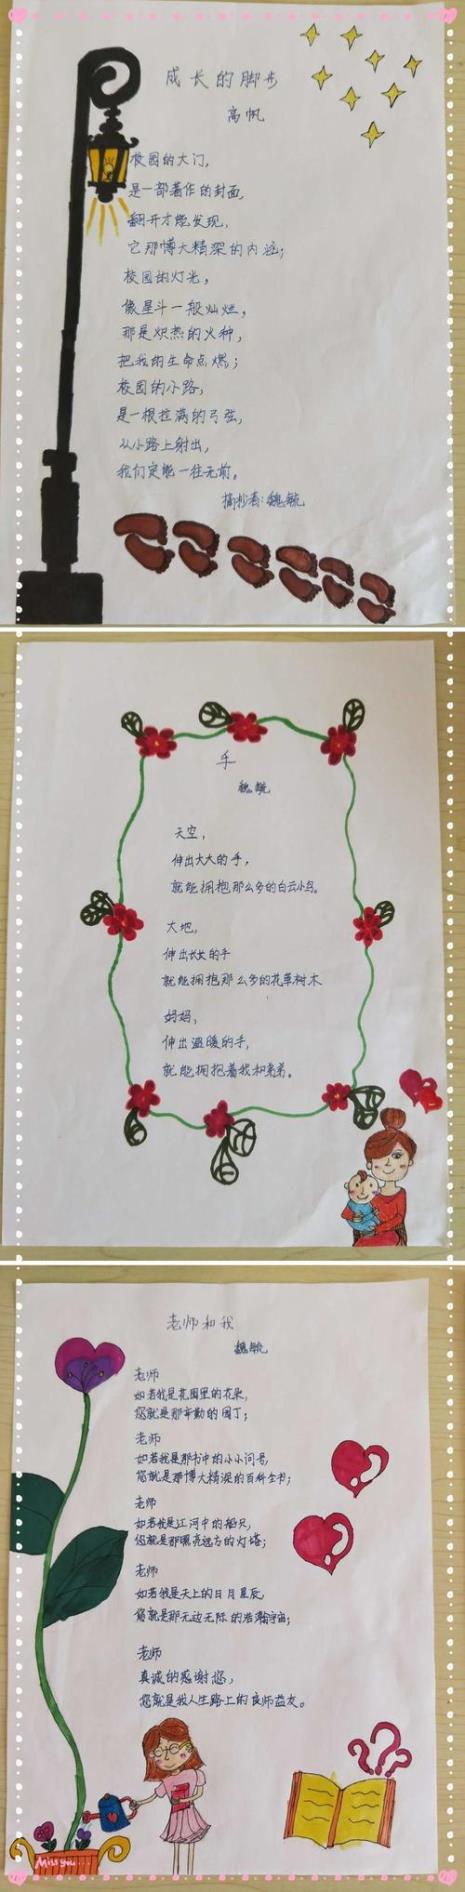 成长的脚步
高帆
校园的大门,
是一部著作的封面,
翻开才能发现,
它那博大精深的内涵;
校园的灯光,
像星斗一般灿烂,
那是炽热的火种,
把我的生命点燃;
校园的小路,
是一根拉满的弓弦,
从小路上射出,
我们定能一往无前。
摘抄者:魏毓
手
魏毓
天空,
伸出大大的手,
就能拥抱那么多的白云小鸟。
大地,
伸出长长的手
就能拥抱那么多的花草树木
妈妈,
伸出温暖的手,
就能拥抱着我和弟弟。
老师和我
魏毓
老师
如若我是花园里的花朵,
您就是那辛勤的园丁;
老师
如若我是那书中的小小问号,
您就是那博大精深的百科全书;
老师
如若我是江河中的船只,
您就是那照亮远方的灯塔;
老师
如若我是天上的日月星辰
您就是那无边无际的浩瀚宇宙;
老师
真诚的感谢您,
您就是我人生路上的良师益友。
Miss you...